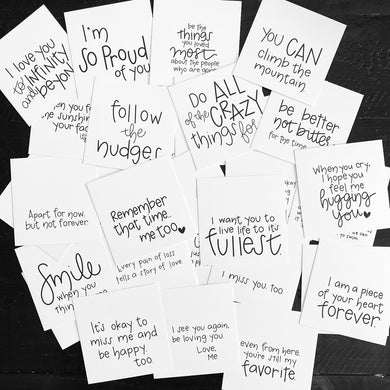 I love you
to INFINITY
and
beyon
I'm
SO PROUD
of you
be the
things
you loved
most
about the people
who are gone
you CAN
climb the
mountain
en you f
he sunshin
your fac
it's
follow
the
nudges
DO ALL
of the CRAZY
things for
be better
not bitter
for the time
Apart for now,
but not forever.
Remember
that time..
me too
I want you to
live life to it's
fullest.
When you cry,
I hope you
feel me
hugging
you
Smile
when you
thin
Every pain of loss
tells a story of love
I miss you, too.
I am a piece
of your heart
forever.
It's okay to
miss me and
be happy,
too.
I see you again,
be loving you.
Love,
Me
even from here,
you're still my
favorite